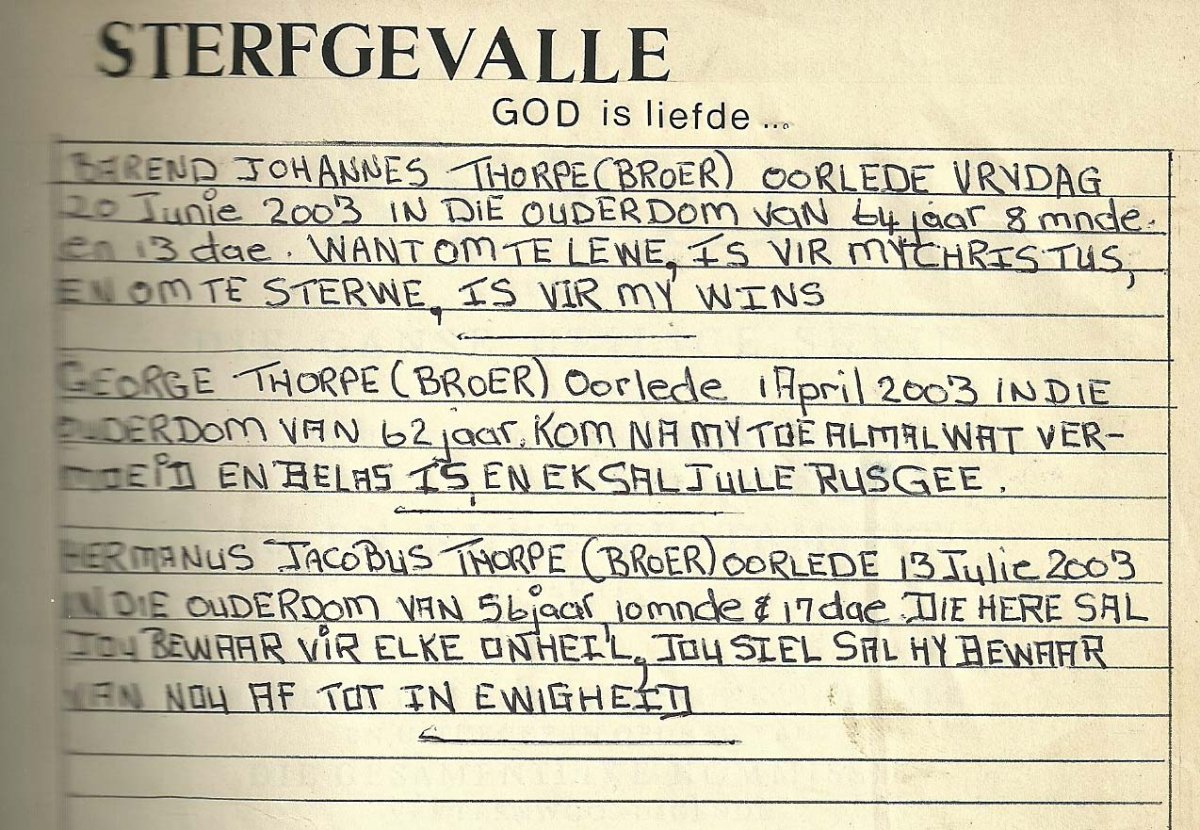 STERFGEVALLE
GOD is liefde ...
BAREND JOHANNES THORPE (BROER) OORLEDE VRYDAG
20 Junie 2003 IN DIE OUDERDOM VAN 64 jaar 8 mnde.
en 13 dae. WANT OM TE LEWE, IS VIR MY CHRISTUS,
EN OM TE STERWE, IS VIR MY WINS
GEORGE THORPE (BROER) Oorlede 1 April 2003 IN DIE
OUDERDOM VAN 62 jaar. KOM NA MY TOE ALMAL WAT VER-
MOEID EN BELAS IS, EN EK SAL JULLE RUS GEE.
HERMANUS JACOBUS THORPE (BROER) OORLEDE 13 Julie 2003
IN DIE OUDERDOM VAN 56 jaar, 10 mnde & 17 dae. DIE HERE SAL
JOU BEWAAR VIR ELKE ONHEIL, JOU SIEL SAL HY BEWAAR
VAN NOU AF TOT IN EWIGHEID